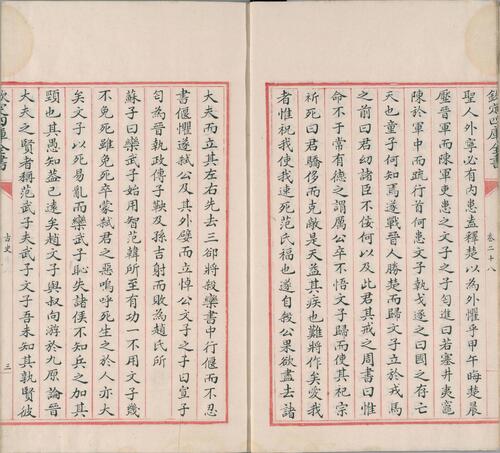 欽定四庫全書
卷二十八
聖人外寧必有内患盍釋楚以為外懼乎甲午晦楚晨
壓晉軍而陳軍吏患之文子之子匄進曰若塞井夷竈
陳於軍中而疏行首何患文子執戈逐之曰國之存亡
天也童子何知焉遂戰晉人勝楚而歸文子立於戎馬
之前曰君幼諸臣不佞何以及此君其戒之周書曰惟
命不于常有德之謂厲公卒不悟文子歸而使其祝宗
祈死曰君驕侈而克敵是天益其疾也難將作矣愛我
者惟祝我使我速死范氏福也遂自殺公果欲盡去諸
大夫而立其左右先去三郤將殺欒書中行偃而不忍
書偃懼遂弑公及其外嬖而立悼公文子之子曰宣子
匄為晉執政傳子鞅及孫吉射而敗為趙氏所
蘇子曰欒武子始用智范韓所至有功一不用文子幾
不免死雖免死卒蒙弑君之惡嗚呼死生之於人亦大
矣文子以死易亂而欒武子恥失諸侯不知兵之加其
頸也其愚知蓋已遠矣趙文子與叔向游於九原論晉
大夫之賢者稱范武子夫武子文子吾未知其孰賢彼
欽定四庫全書
古史
三